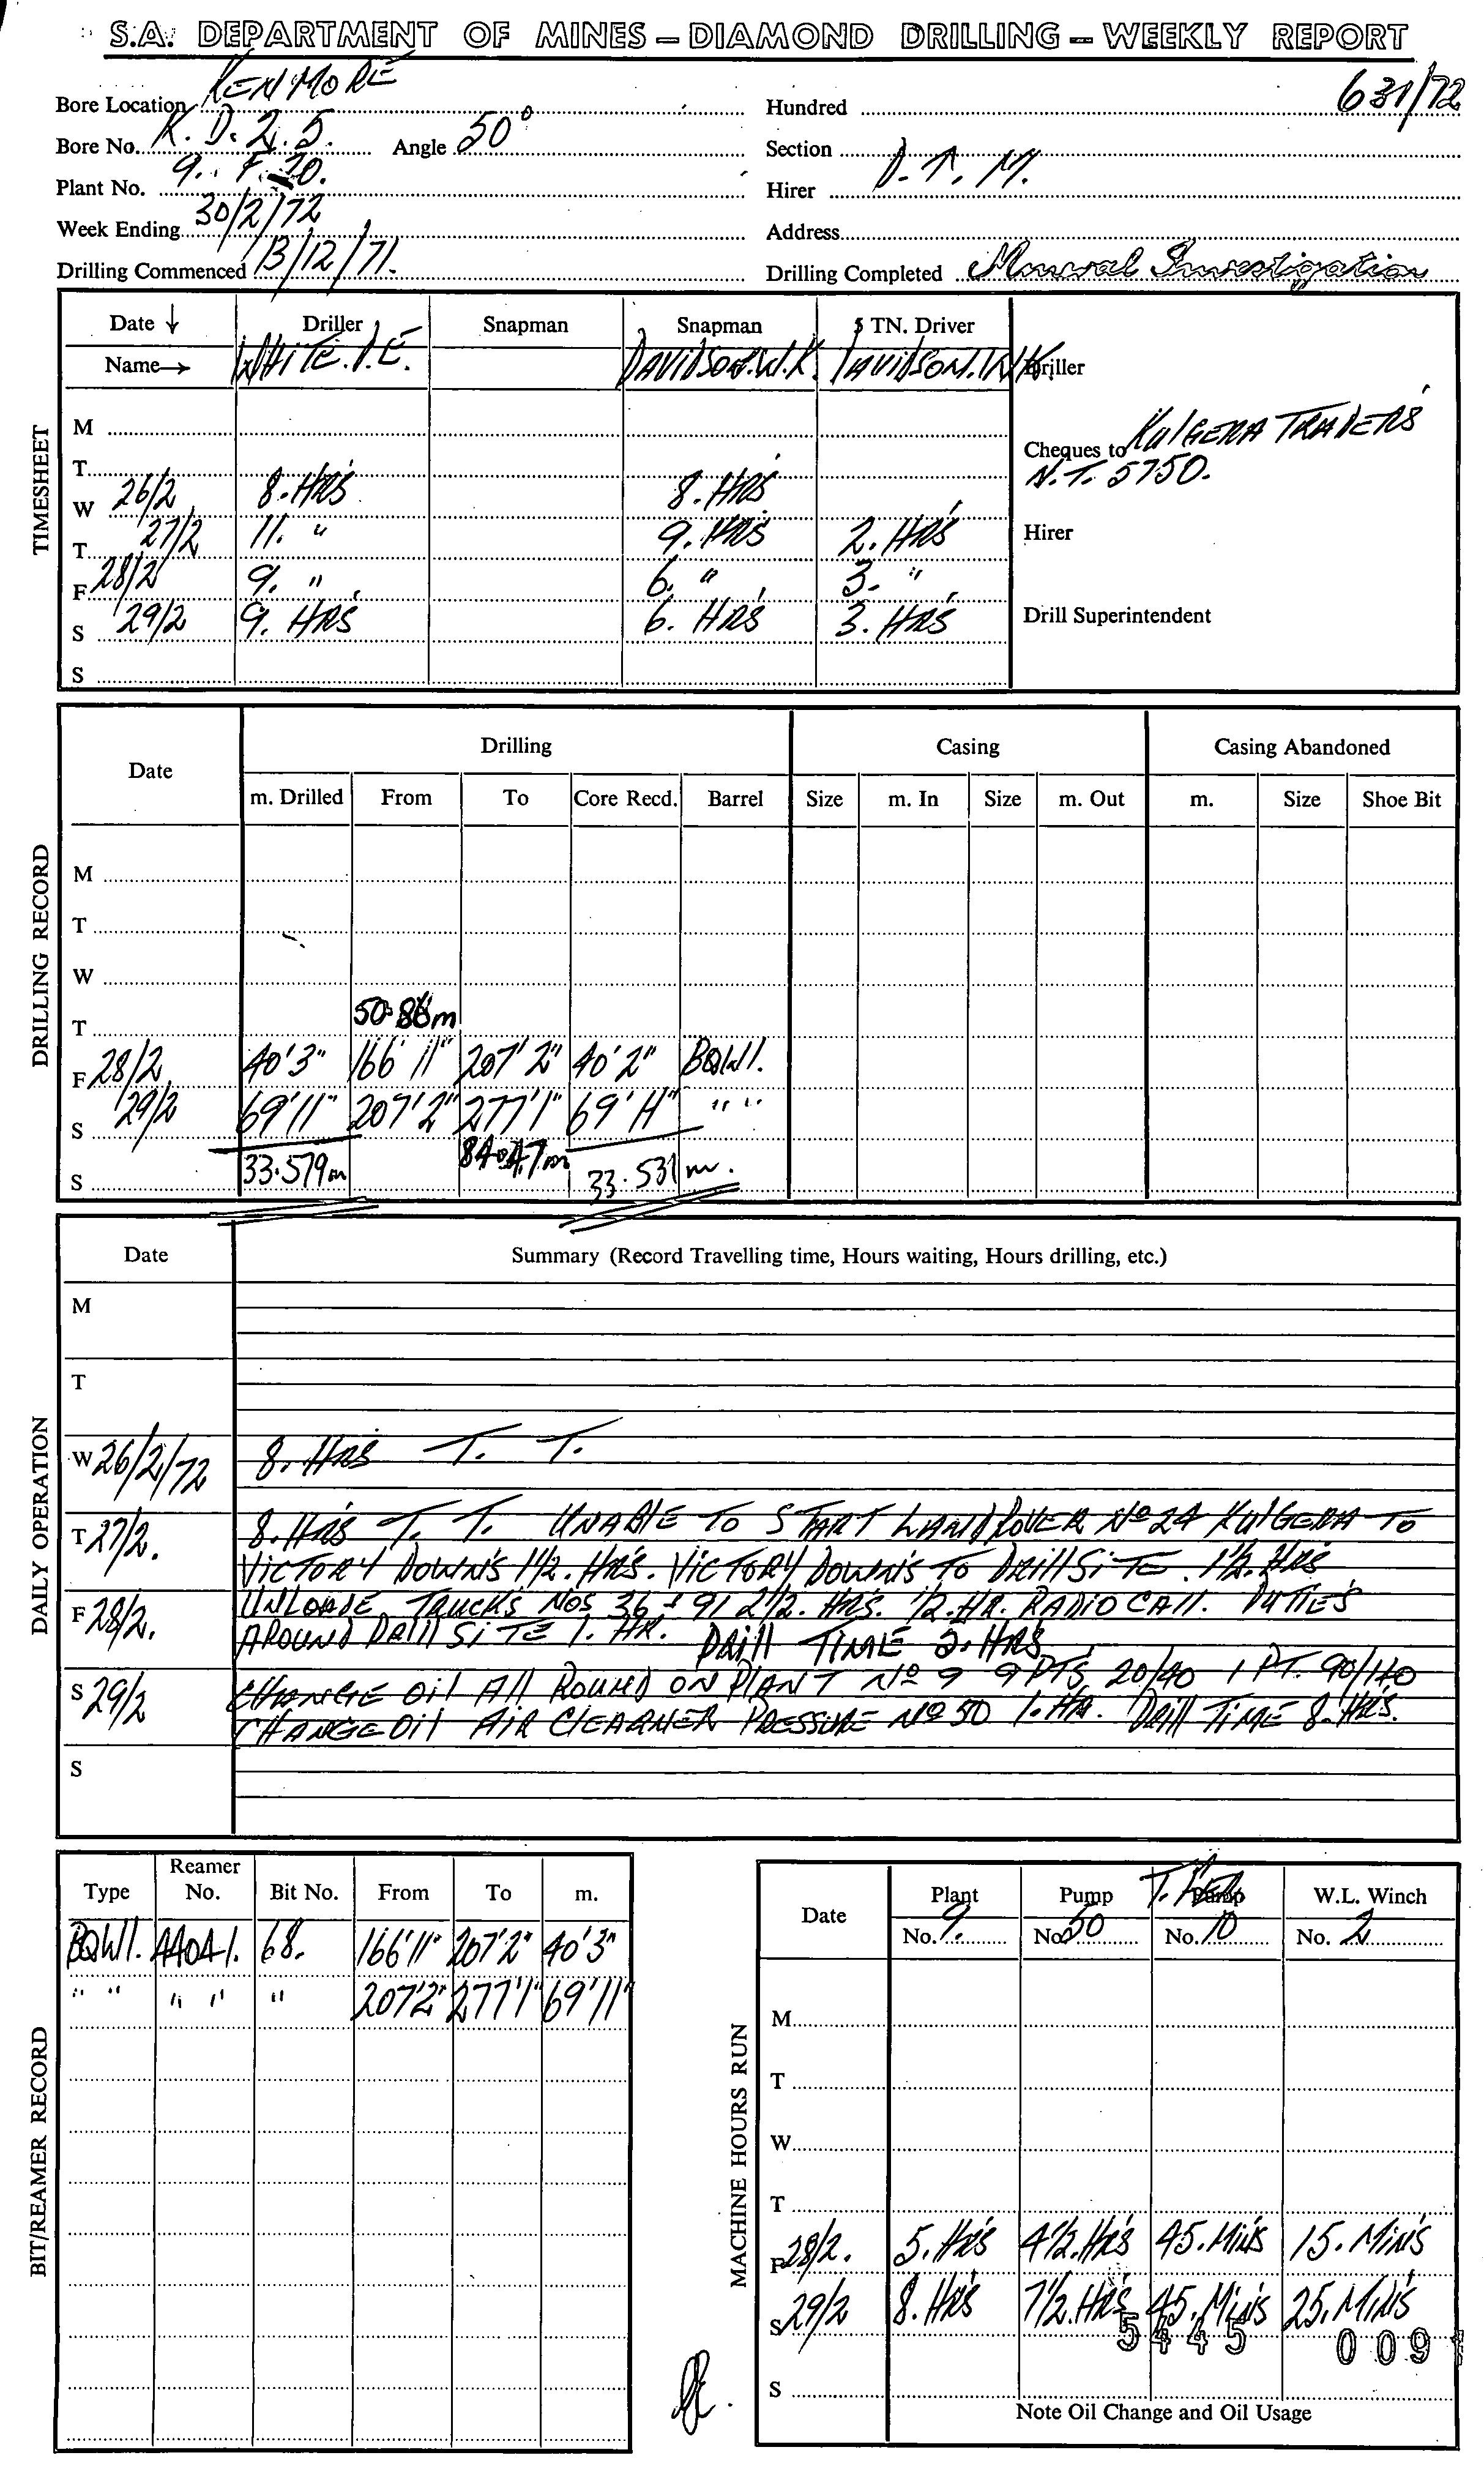 S.A. DEPARTMENT OF MINES – DIAMOND DRILLING – WEEKLY REPORT
631/72
Bore Location KENMORE Hundred
Bore No. K. D. 2. 5. Angle 50° Section
Plant No. 9. F. 20. Hirer D. T. M.
Week Ending 30/2/72 Address
Drilling Commenced 13/12/71. Drilling Completed Mineral Investigation
TIMESHEET
Date ↓ Driller Snapman Snapman 5 TN. Driver
Name→ WHITE. D. E. DAVIDSON. W. K. DAVIDSON. W K. Driller
M
Cheques to KULGERA TRADERS
N. T. 5750.
T
W 26/2 8. HRS 8. HRS
T 27/2 11. " 9. HRS 2. HRS Hirer
F 28/2 9. " 6. " 3. "
S 29/2 9. HRS 6. HRS 3. HRS Drill Superintendent
S
DRILLING RECORD
Date Drilling Casing Casing Abandoned
m. Drilled From To Core Recd. Barrel Size m. In Size m. Out m. Size Shoe Bit
M
T
W
T 50.88m
F 28/2 40'3" 166'11" 207'2" 40'2" BQWl.
S 29/2 69'11" 207'2" 277'1" 69'H" " "
S 33.579m 84.47m 33.531m.
DAILY OPERATION
Date Summary (Record Travelling time, Hours waiting, Hours drilling, etc.)
M
T
W 26/2/72 8. HRS T. T.
T 27/2. 8. HRS T. T. UNABLE TO START LANDROVER No 24 KULGERA TO
VICTORY DOWNS 1½. HRS. VICTORY DOWNS TO DRILL SITE. 1½. HRS
F 28/2. UNLOADE TRUCKS NOS 36 + 91 2½. HRS. ½. HR. RADIO CALL. DUTIES
AROUND DRILL SITE 1. HR. DRILL TIME 5. HRS
S 29/2 CHANGE OIL ALL ROUND ON PLANT No 9 9 PTS 20/40 1 PT. 90/140
CHANGE OIL AIR CLEARNER PRESSURE No 50 1. HR. DRILL TIME 8. HRS.
S
BIT/REAMER RECORD
Type Reamer No. Bit No. From To m.
BQWl. AA041. 68. 166'11" 207'2" 40'3"
" " " " " 207'2" 277'1" 69'11"
MACHINE HOURS RUN
Date Plant Pump Pump W.L. Winch
No. 9. No. 50 No. 10 No. 2
M
T
W
T
F 28/2. 5. HRS 4½. HRS 45. MINS 15. MINS
S 29/2 8. HRS 7½. HRS 45. MINS 25. MINS
5445 009
S
Note Oil Change and Oil Usage